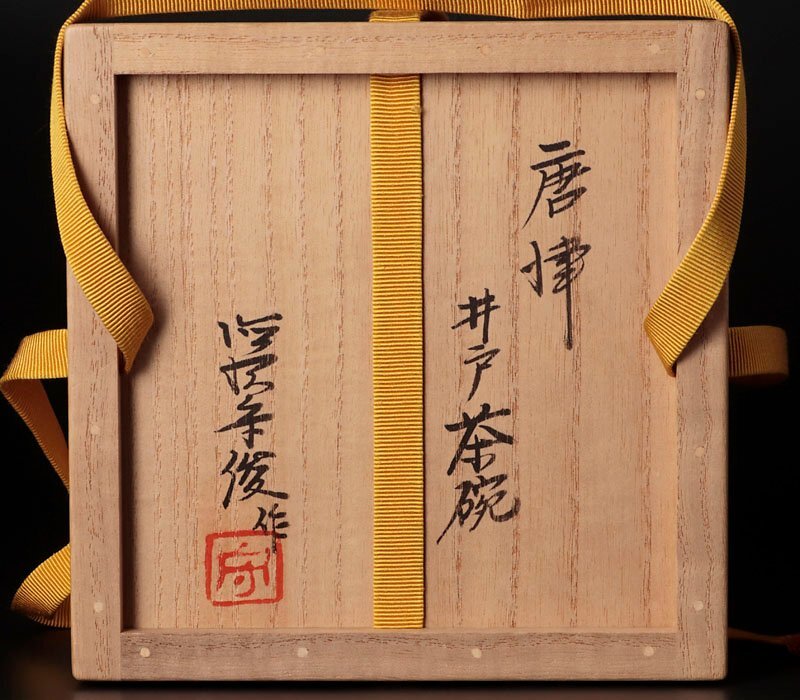 唐津
井戸茶碗
俊作